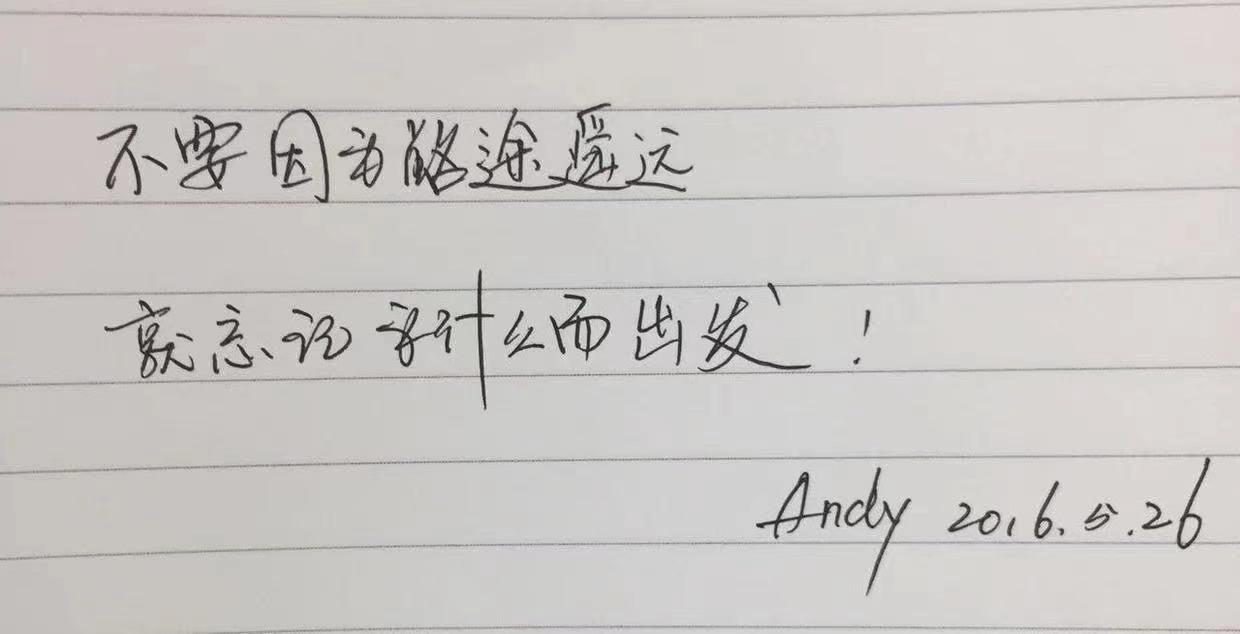 不要因为路途遥远
就忘记为什么而出发！
Andy 2016.5.26